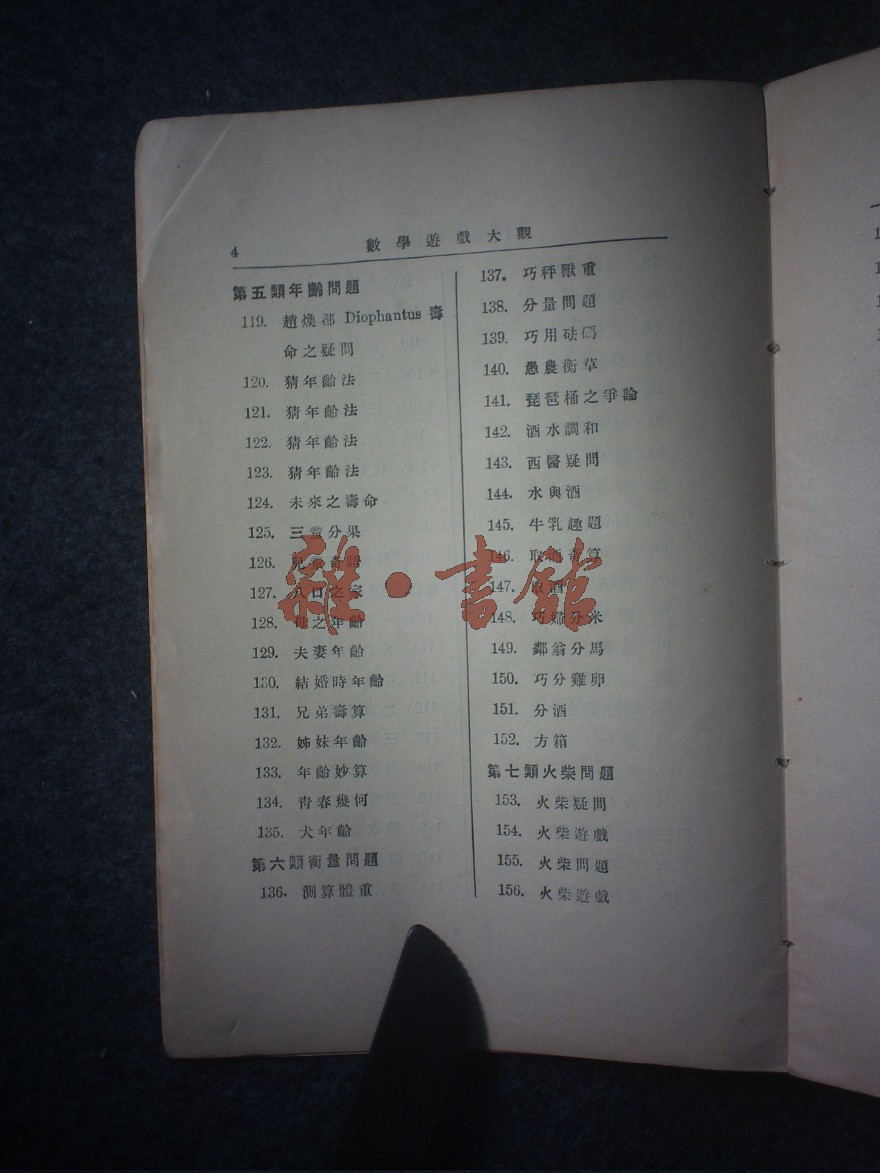 4
數學遊戲大觀
第五類年齡問題
119. 趙煥都 Diophantus 壽
命之疑問
120. 猜年齡法
121. 猜年齡法
122. 猜年齡法
123. 猜年齡法
124. 未來之壽命
125. 三童分果
126. 兒童奇語
127. 八口之家
128. 他之年齡
129. 夫妻年齡
130. 結婚時年齡
131. 兄弟壽算
132. 姊妹年齡
133. 年齡妙算
134. 青春幾何
135. 犬年齡
第六類衡量問題
136. 測算體重
137. 巧秤獸重
138. 分量問題
139. 巧用砝碼
140. 愚農衡草
141. 琵琶桶之爭論
142. 酒水調和
143. 西醫疑問
144. 水與酒
145. 牛乳趣題
146. 取酒奇算
147. 取酒
148. 巧婦分米
149. 鄰翁分馬
150. 巧分雞卵
151. 分酒
152. 方箱
第七類火柴問題
153. 火柴疑問
154. 火柴遊戲
155. 火柴問題
156. 火柴遊戲
雜·書館